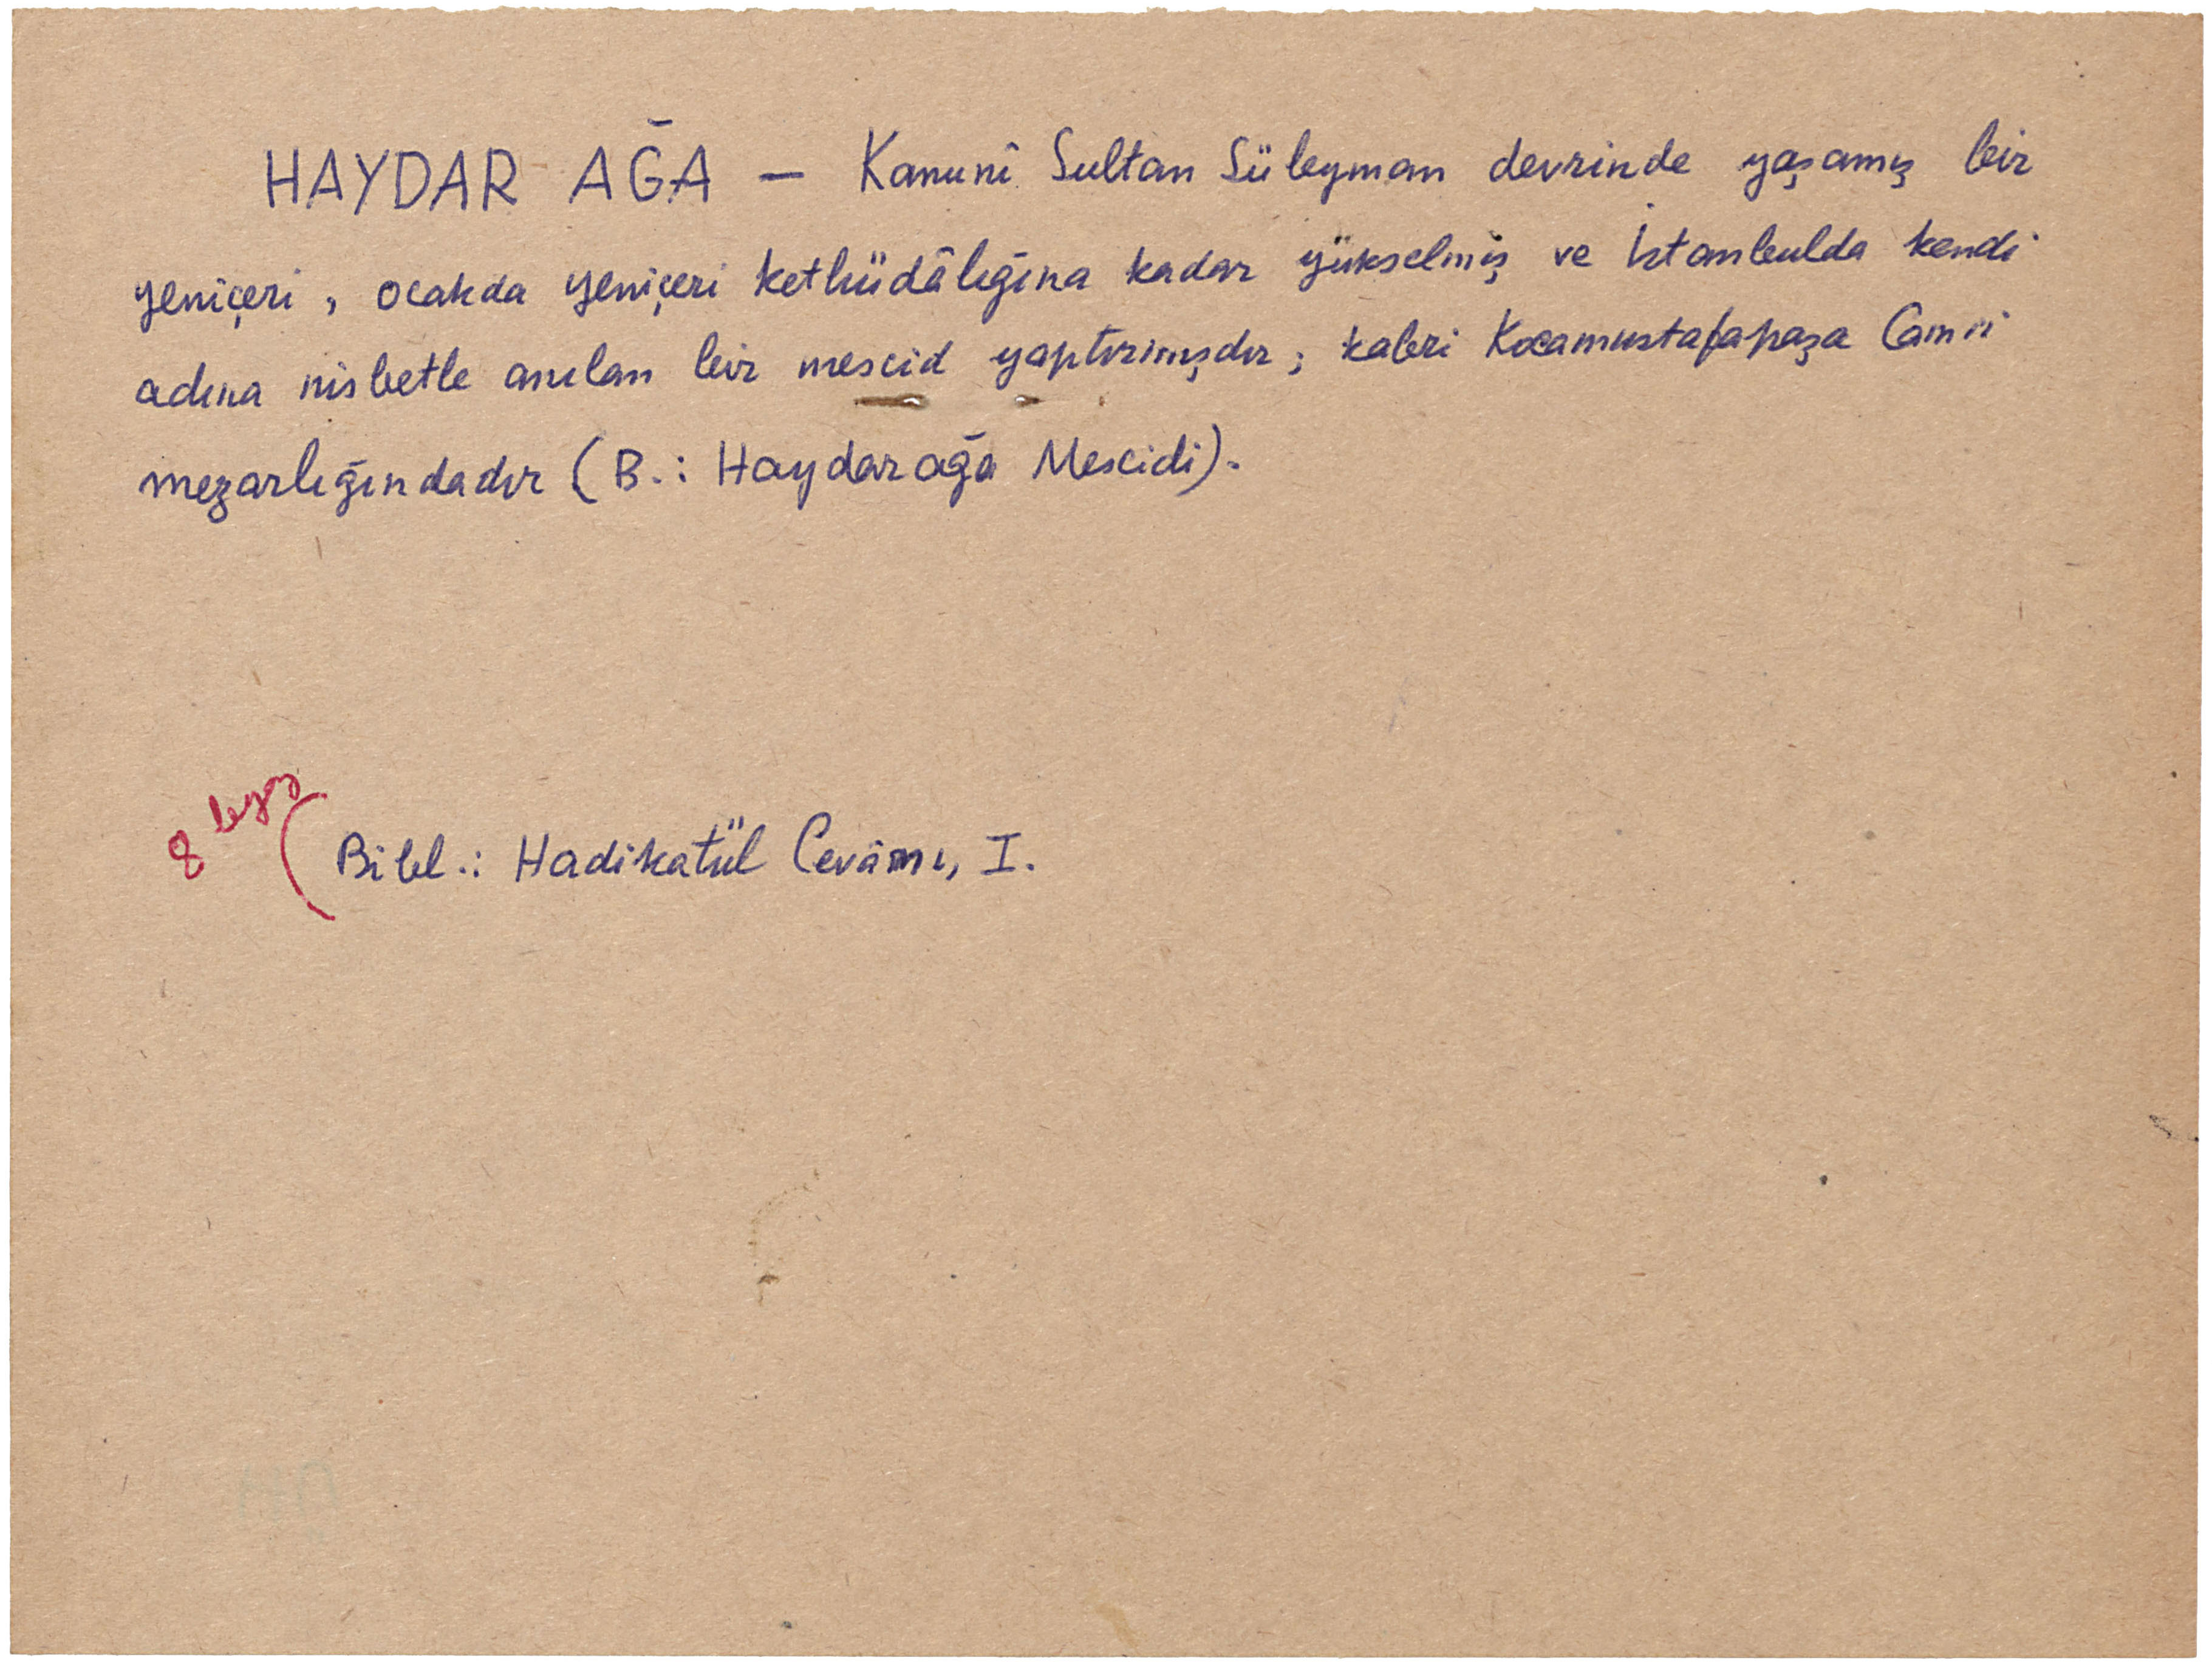 HAYDAR AĞA — Kanunî Sultan Süleyman devrinde yaşamış bir
yeniçeri, ocakda yeniçeri kethüdâlığına kadar yükselmiş ve İstanbulda kendi
adına nisbetle anılan bir mescid yaptırmışdır; kabri Kocamustafapaşa Camii
mezarlığındadır (B.: Haydarağa Mescidi).
8 beyaz
(Bibl.: Hadikatül Cevâmı, I.